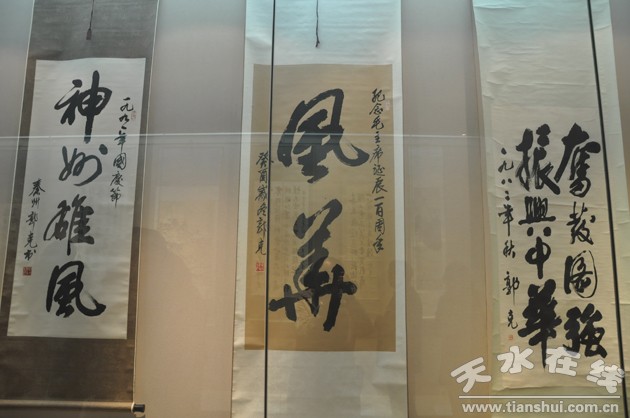 一九九一年國慶節
神州雄風
秦州郭克书
纪念毛主席诞辰一百周年
風華
癸酉岁冬郭克
奮发图強
振興中華
一九八三年秋郭克
天水在线
www.tianshui.com.cn